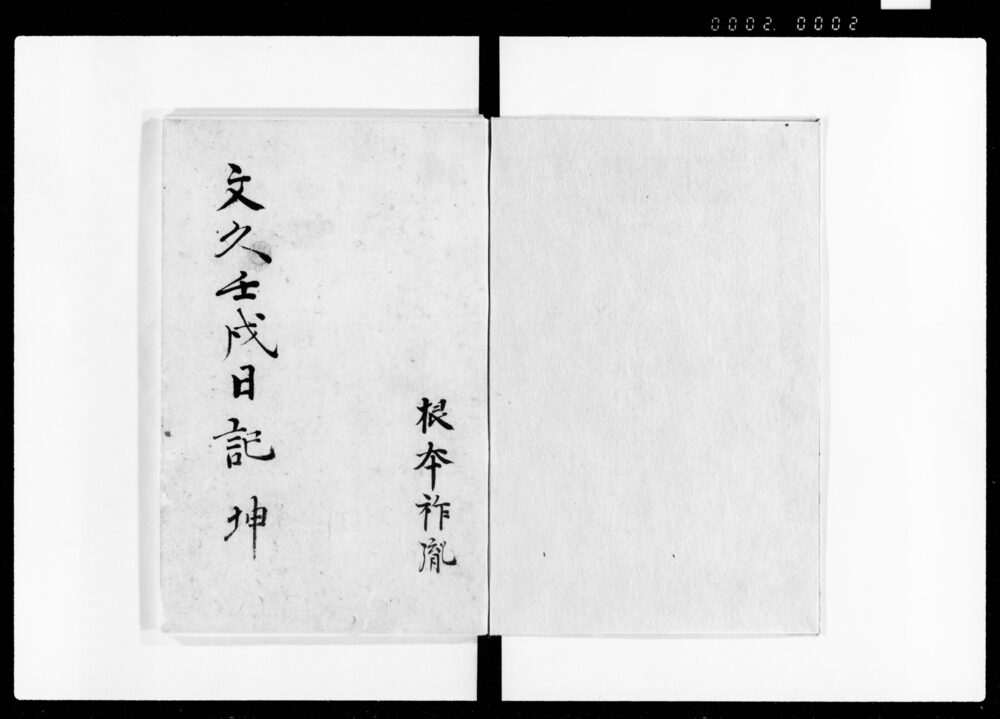 0002. 0002
根本祚胤
文久壬戌日記 坤